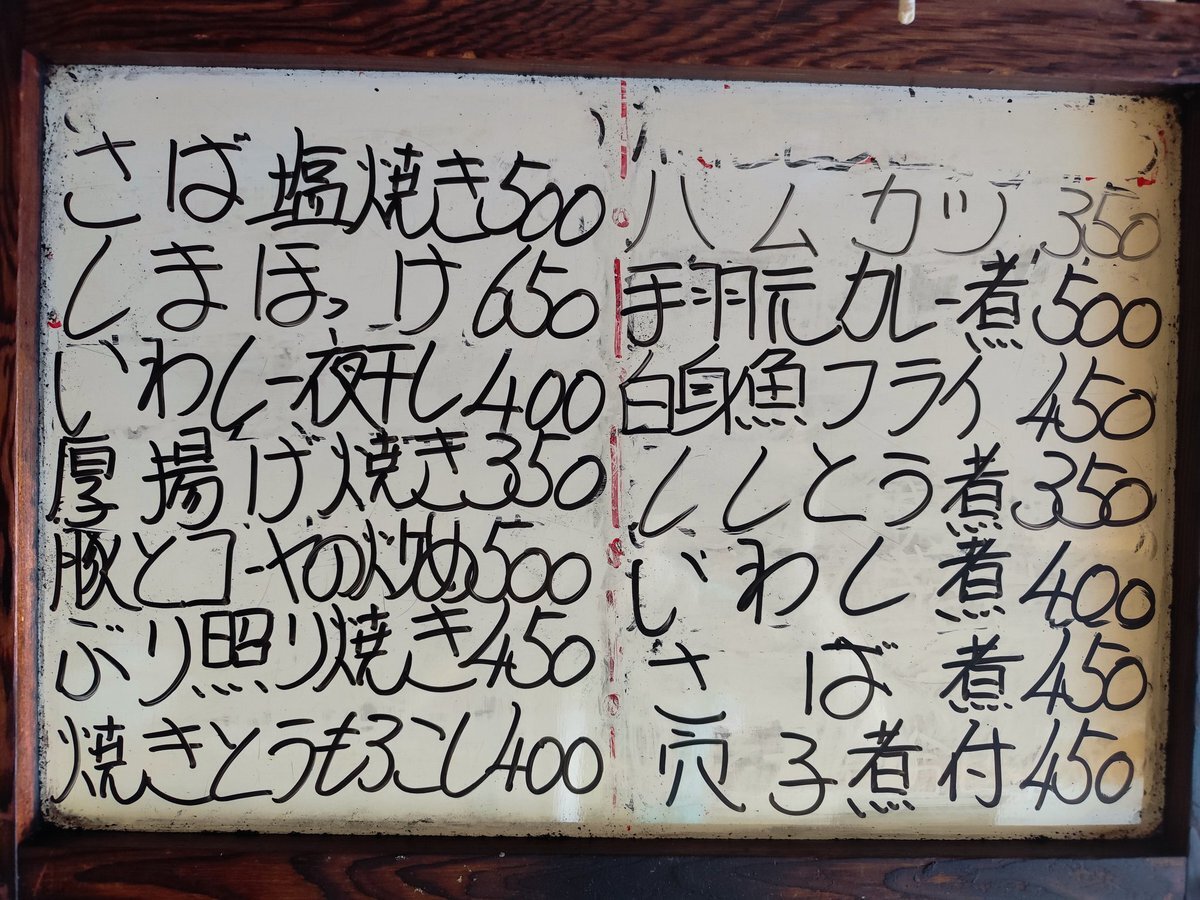 さば塩焼き500
しまほっけ650
いわし一夜干し400
厚揚げ焼き350
豚とゴーヤの炒め500
ぶり照り焼き450
焼きとうもろこし400
ハムカツ350
手羽元カレー煮500
白身魚フライ450
ししとう煮350
いわし煮400
さば煮450
穴子煮付450